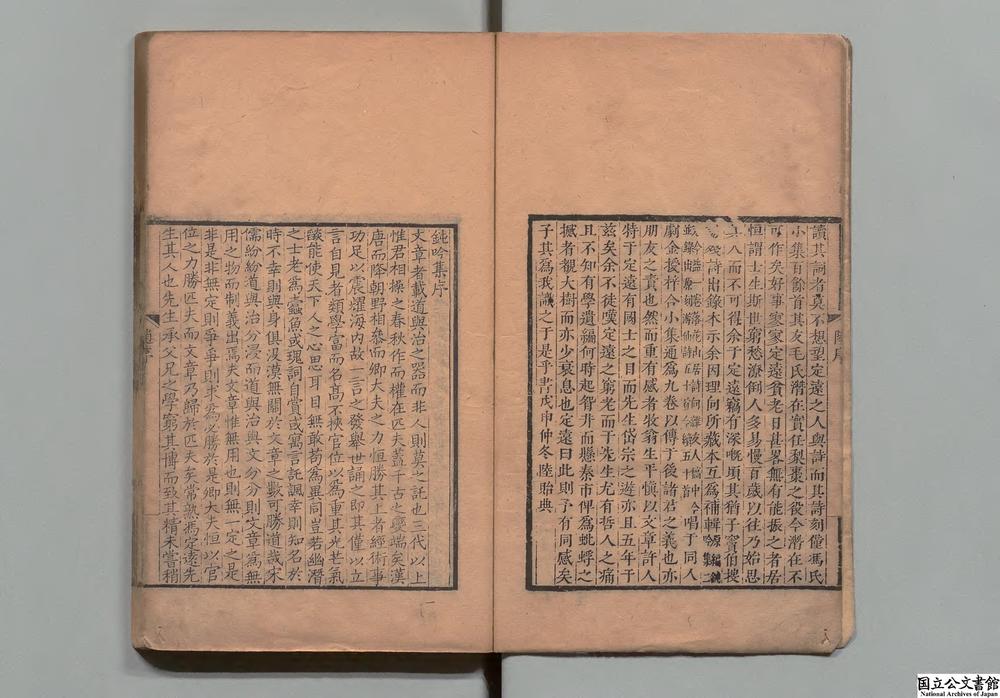 讀其詞者莫不想望定遠之人與詩而其詩刻僅馮氏
小集百餘首其友毛氏潛在實任梨棗之役今潛在不
可作矣好事寥寥定遠貧老日甚畧無有能振之者居
恒謂士生斯世窮愁潦倒人多易慢百歲以往乃始思
其人而不可得余于定遠竊有深嘅頃其猶子竇伯搜
詩出錄木示余因理向所藏本互爲補輯
今唱于同人
劂金授梓合小集通爲九卷以傳于後諸君之義也亦
朋友之責也然而重有感者牧翁生平慎以文章許人
特于定遠有國士之目而先生岱宗之遊亦且五年于
茲矣余不徒嘆定遠之窮老而于先生尤有哲人之痛
且不知有學遺編何時起眢井而懸秦市俾爲蚍蜉之
撼者覩大樹而亦少衰息也定遠曰此則予有同感矣
子其爲我識之于是乎書戊申仲冬陸貽典
鈍吟集序
文章者載道與治之器而非人則莫之託也三代以上
惟君相操之春秋作而權在匹夫蓋千古之變端矣漢
唐而降朝野相叅而卿大夫之力恒勝其上者經術事
功足以震燿海内故一言之發舉世誦之即其僅以立
言自見者類學富而名高不挾官位以爲重其光芒氣
談能使天下人之心思耳目無敢苟爲異同豈若幽潛
之士老爲蠹魚或瑰詞自賞或寓言託諷幸則知名於
時不幸則與身俱沒漠無關於文章之數可勝道哉宋
儒紛紛道與治分浸而道與治與文分分則文章爲無
用之物而制義出焉夫文章惟無用也則無一定之是
非是非無定則爭爭則求必勝於是卿大夫恒以官
位之力勝匹夫而文章乃歸於匹夫矣常熟馮定遠先
生其人也先生承父兄之學窮其博而致其精未嘗稍
国立公文書館
National Archives of Japan